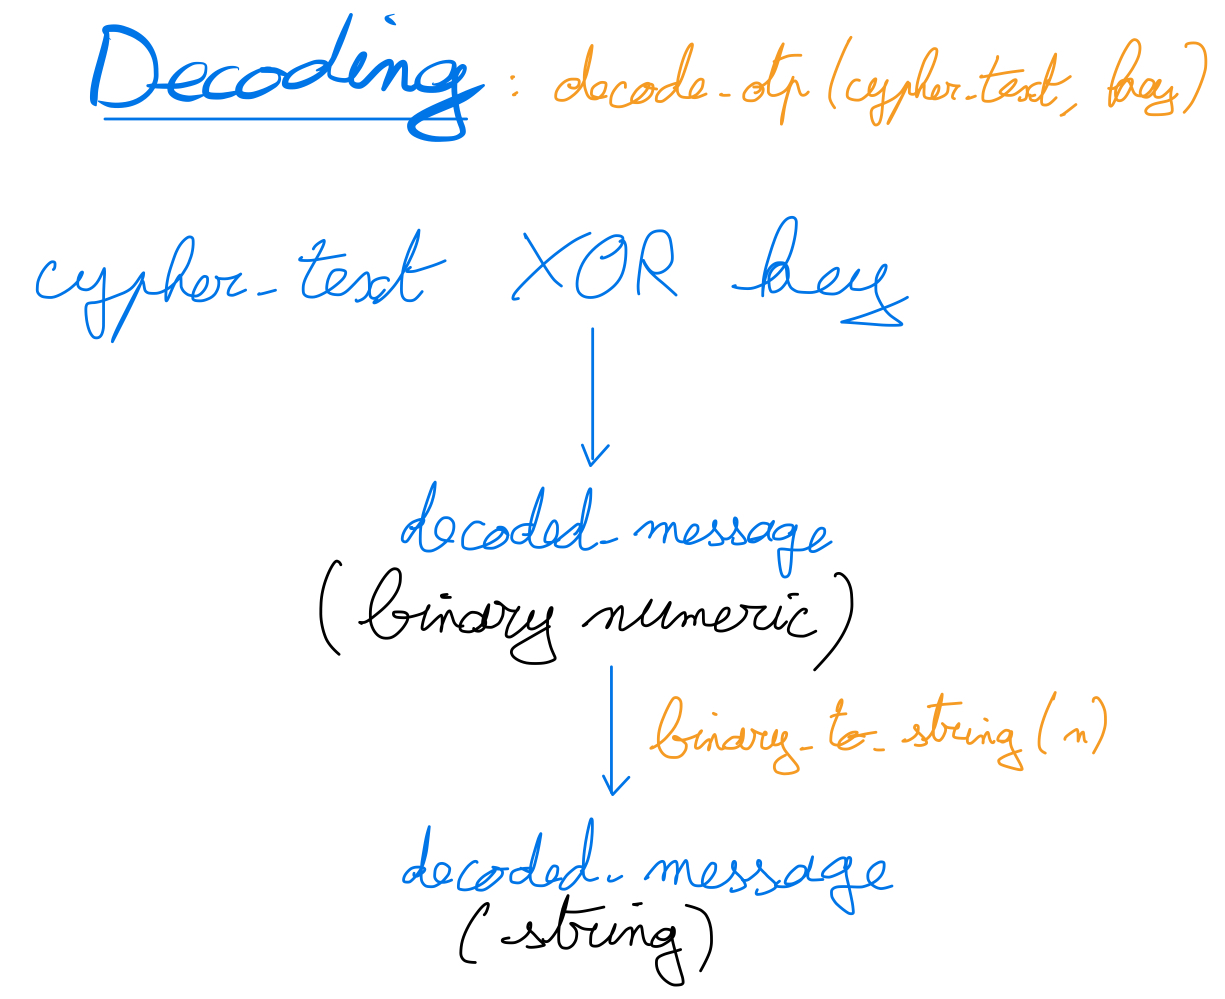 Decoding : decode_otp (cypher_text, key)
cypher_text XOR key
decoded_message
(binary numeric)
binary_to_string(n)
decoded_message
(string)